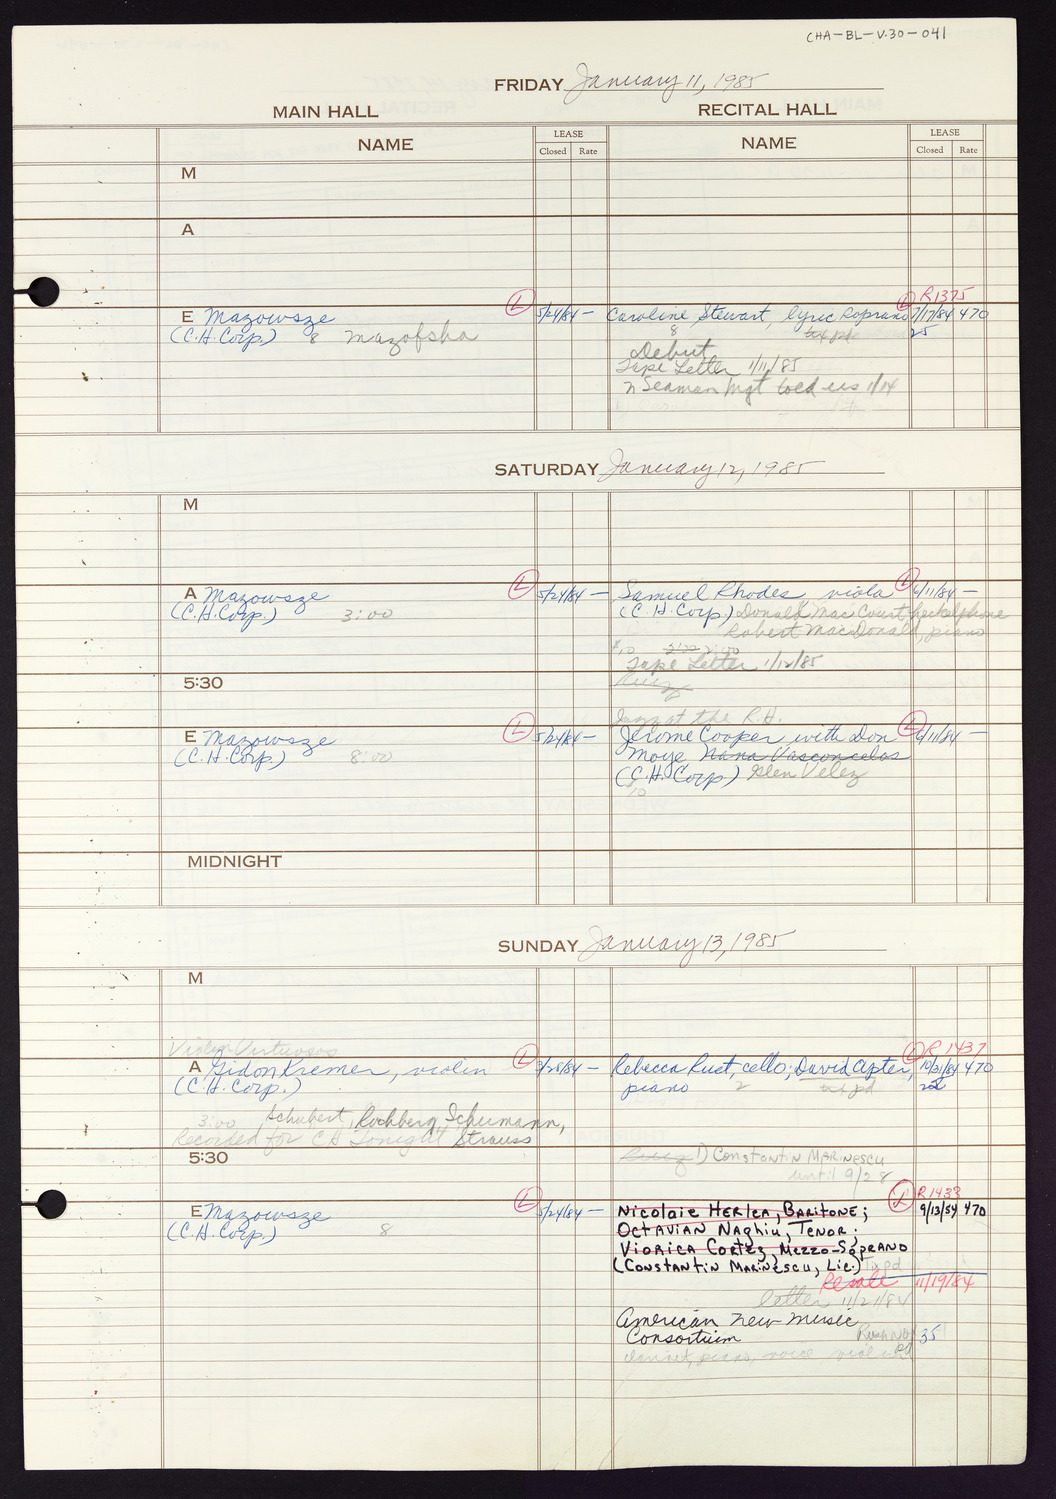 CHA-BL-V.30-041
FRIDAY January 11, 1985
MAIN HALL RECITAL HALL
NAME LEASE Closed Rate NAME LEASE Closed Rate
M
A
R1375
E Mazowsze (L) 5/24/84 — Caroline Stewart, lyric soprano (L) 7/17/84 470
(C.H. Corp.) 8 mazofsha 8 tix pd 25
Debut
Tape Letter 1/11/85
N Seaman Mgt told us 1/14
SATURDAY January 12, 1985
M
A Mazowsze (L) 5/24/84 — Samuel Rhodes, viola (L) 6/11/84 —
(C.H. Corp.) 3:00 (C.H. Corp.) Donald MacCourt, heckelphone
Robert MacDonald, piano
Tape Letter 1/12/85
5:30
Jazz at the R.H.
E Mazowsze (L) 5/24/84 — Jerome Cooper with Don (L) 6/11/84 —
(C.H. Corp.) 8:00 Moye Nana Vasconcelos
(C.H. Corp.) Glen Velez
10
MIDNIGHT
SUNDAY January 13, 1985
M
Violin Virtuosos R 1437
A Gidon Kremer, violin (L) 3/28/84 — Rebecca Rust, cello; David Apter, (L) 10/31/84 470
(C.H. Corp.) piano 2 tix pd
3:00 Schubert, Rochberg, Schumann,
Recorded for CH Tonight Strauss
5:30 1) Constantin Marinescu
until 9/28
R1433
E Mazowsze (L) 5/24/84 — Nicolaie Herlea, Baritone; (L) 9/13/84 470
(C.H. Corp.) 8 Octavian Naghiu, Tenor;
Viorica Cortez, Mezzo-Soprano
(Constantin Marinescu, Lic.) Tix pd
Resale 11/19/84
letter 11/21/84
American New Music
Consortium 35
clarinet, piano, voice